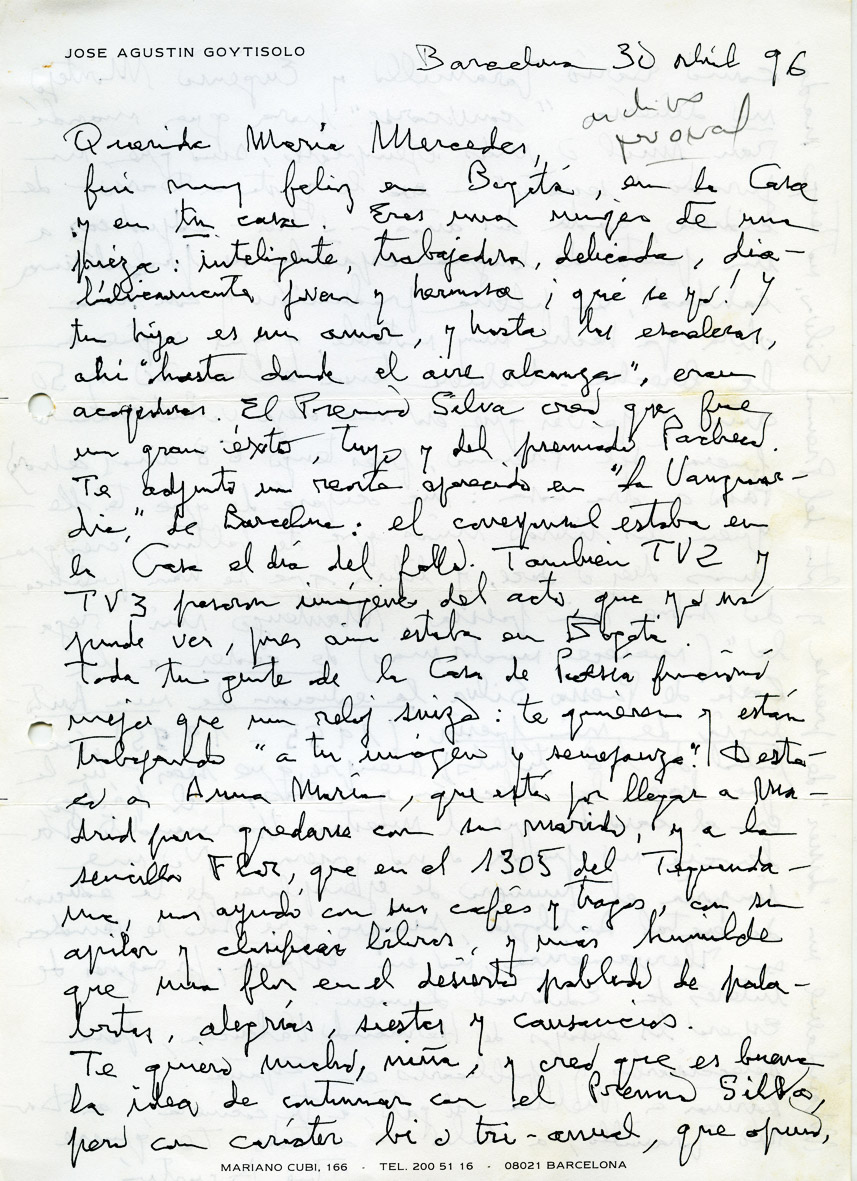 JOSE AGUSTIN GOYTISOLO
Barcelona 30 abril 96
archivo
personal
Querida María Mercedes,
fui muy feliz en Bogotá, en la Casa
y en tu casa. Eres una mujer de una
pieza: inteligente, trabajadora, delicada, dia-
bólicamente joven y hermosa ¡qué se yo! Y
tu hija es un amor, y hasta las escaleras,
ahí "hasta donde el aire alcanza", eran
acogedoras. El Premio Silva creo que fue
un gran éxito, tuyo y del premiado Pacheco.
Te adjunto un recorte aparecido en "La Vanguar-
dia," de Barcelona: el corresponsal estaba en
la Casa el día del fallo. También TV2 y
TV3 pasaron imágenes del acto, que yo no
pude ver, pues aún estaba en Bogotá.
Toda tu gente de la Casa de Poesía funcionó
mejor que un reloj suizo: te quieren y están
trabajando "a tu imágen y semejanza". Destá-
co a Anna María, que está por llegar a Ma-
drid para quedarse con su marido, y a la
sencilla Flor, que en el 1305 del Tequenda-
ma, nos ayudó con sus cafés y tragos, con su
apilar y clasificar libros, y más humilde
que una flor en el desierto poblado de pala-
bras, alegrías, siestas y cansancios.
Te quiero mucho, niña, y creo que es buena
la idea de continuar con el Premio Silva,
pero con carácter bi o tri-anual, que opino,
MARIANO CUBI, 166 · TEL. 200 51 16 · 08021 BARCELONA